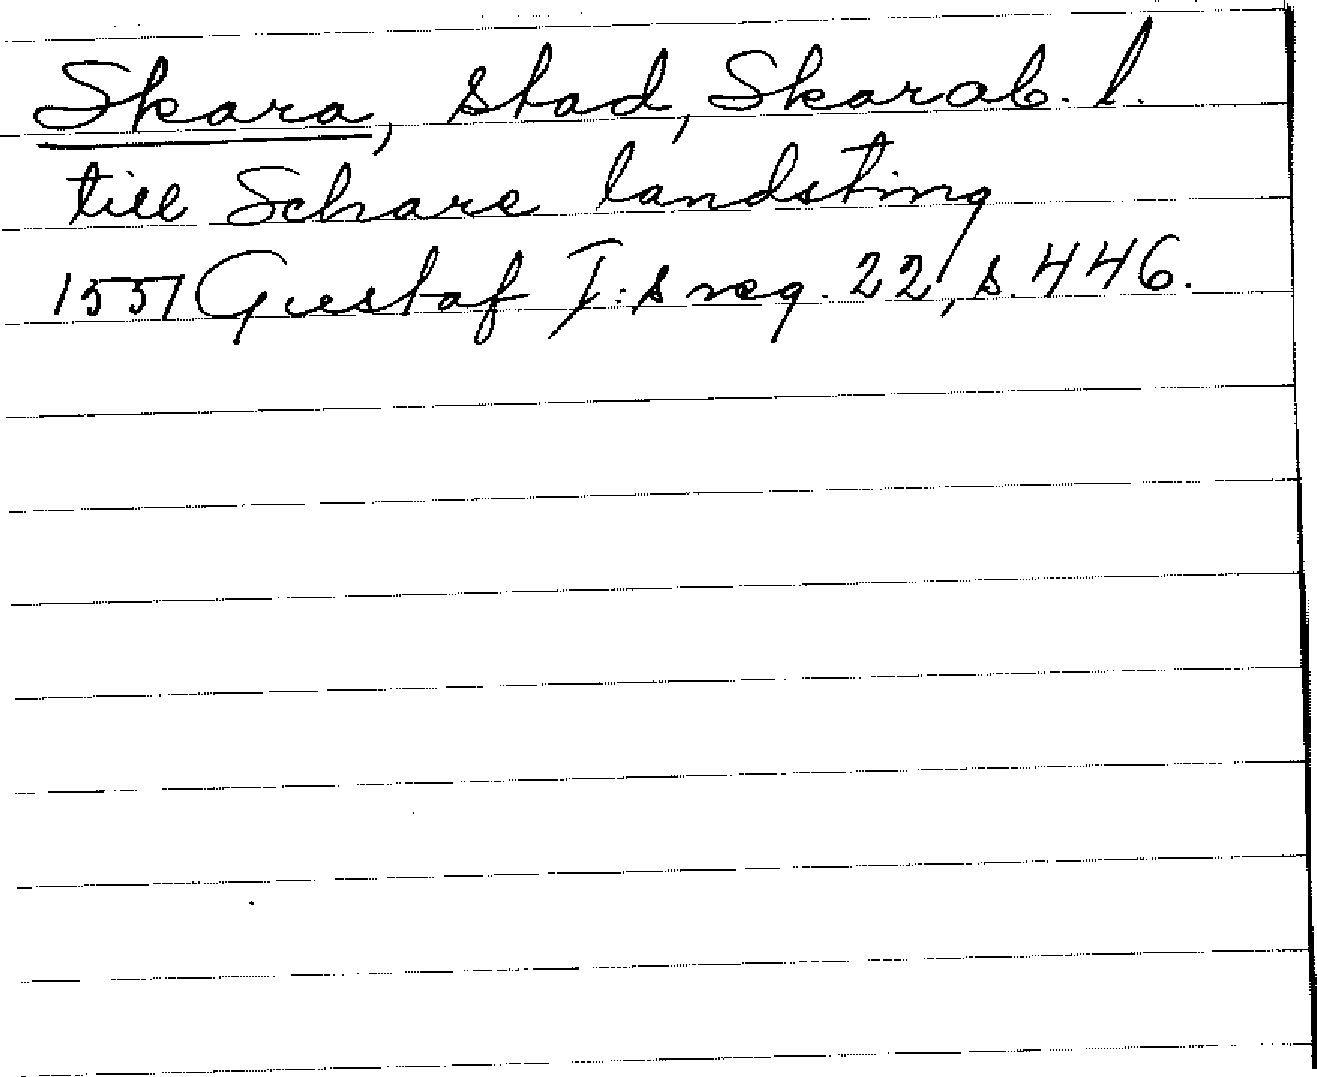 Skara, stad, Skarab. l.
till Schare landsting
1551 Gustaf I:s reg. 22, s. 446.